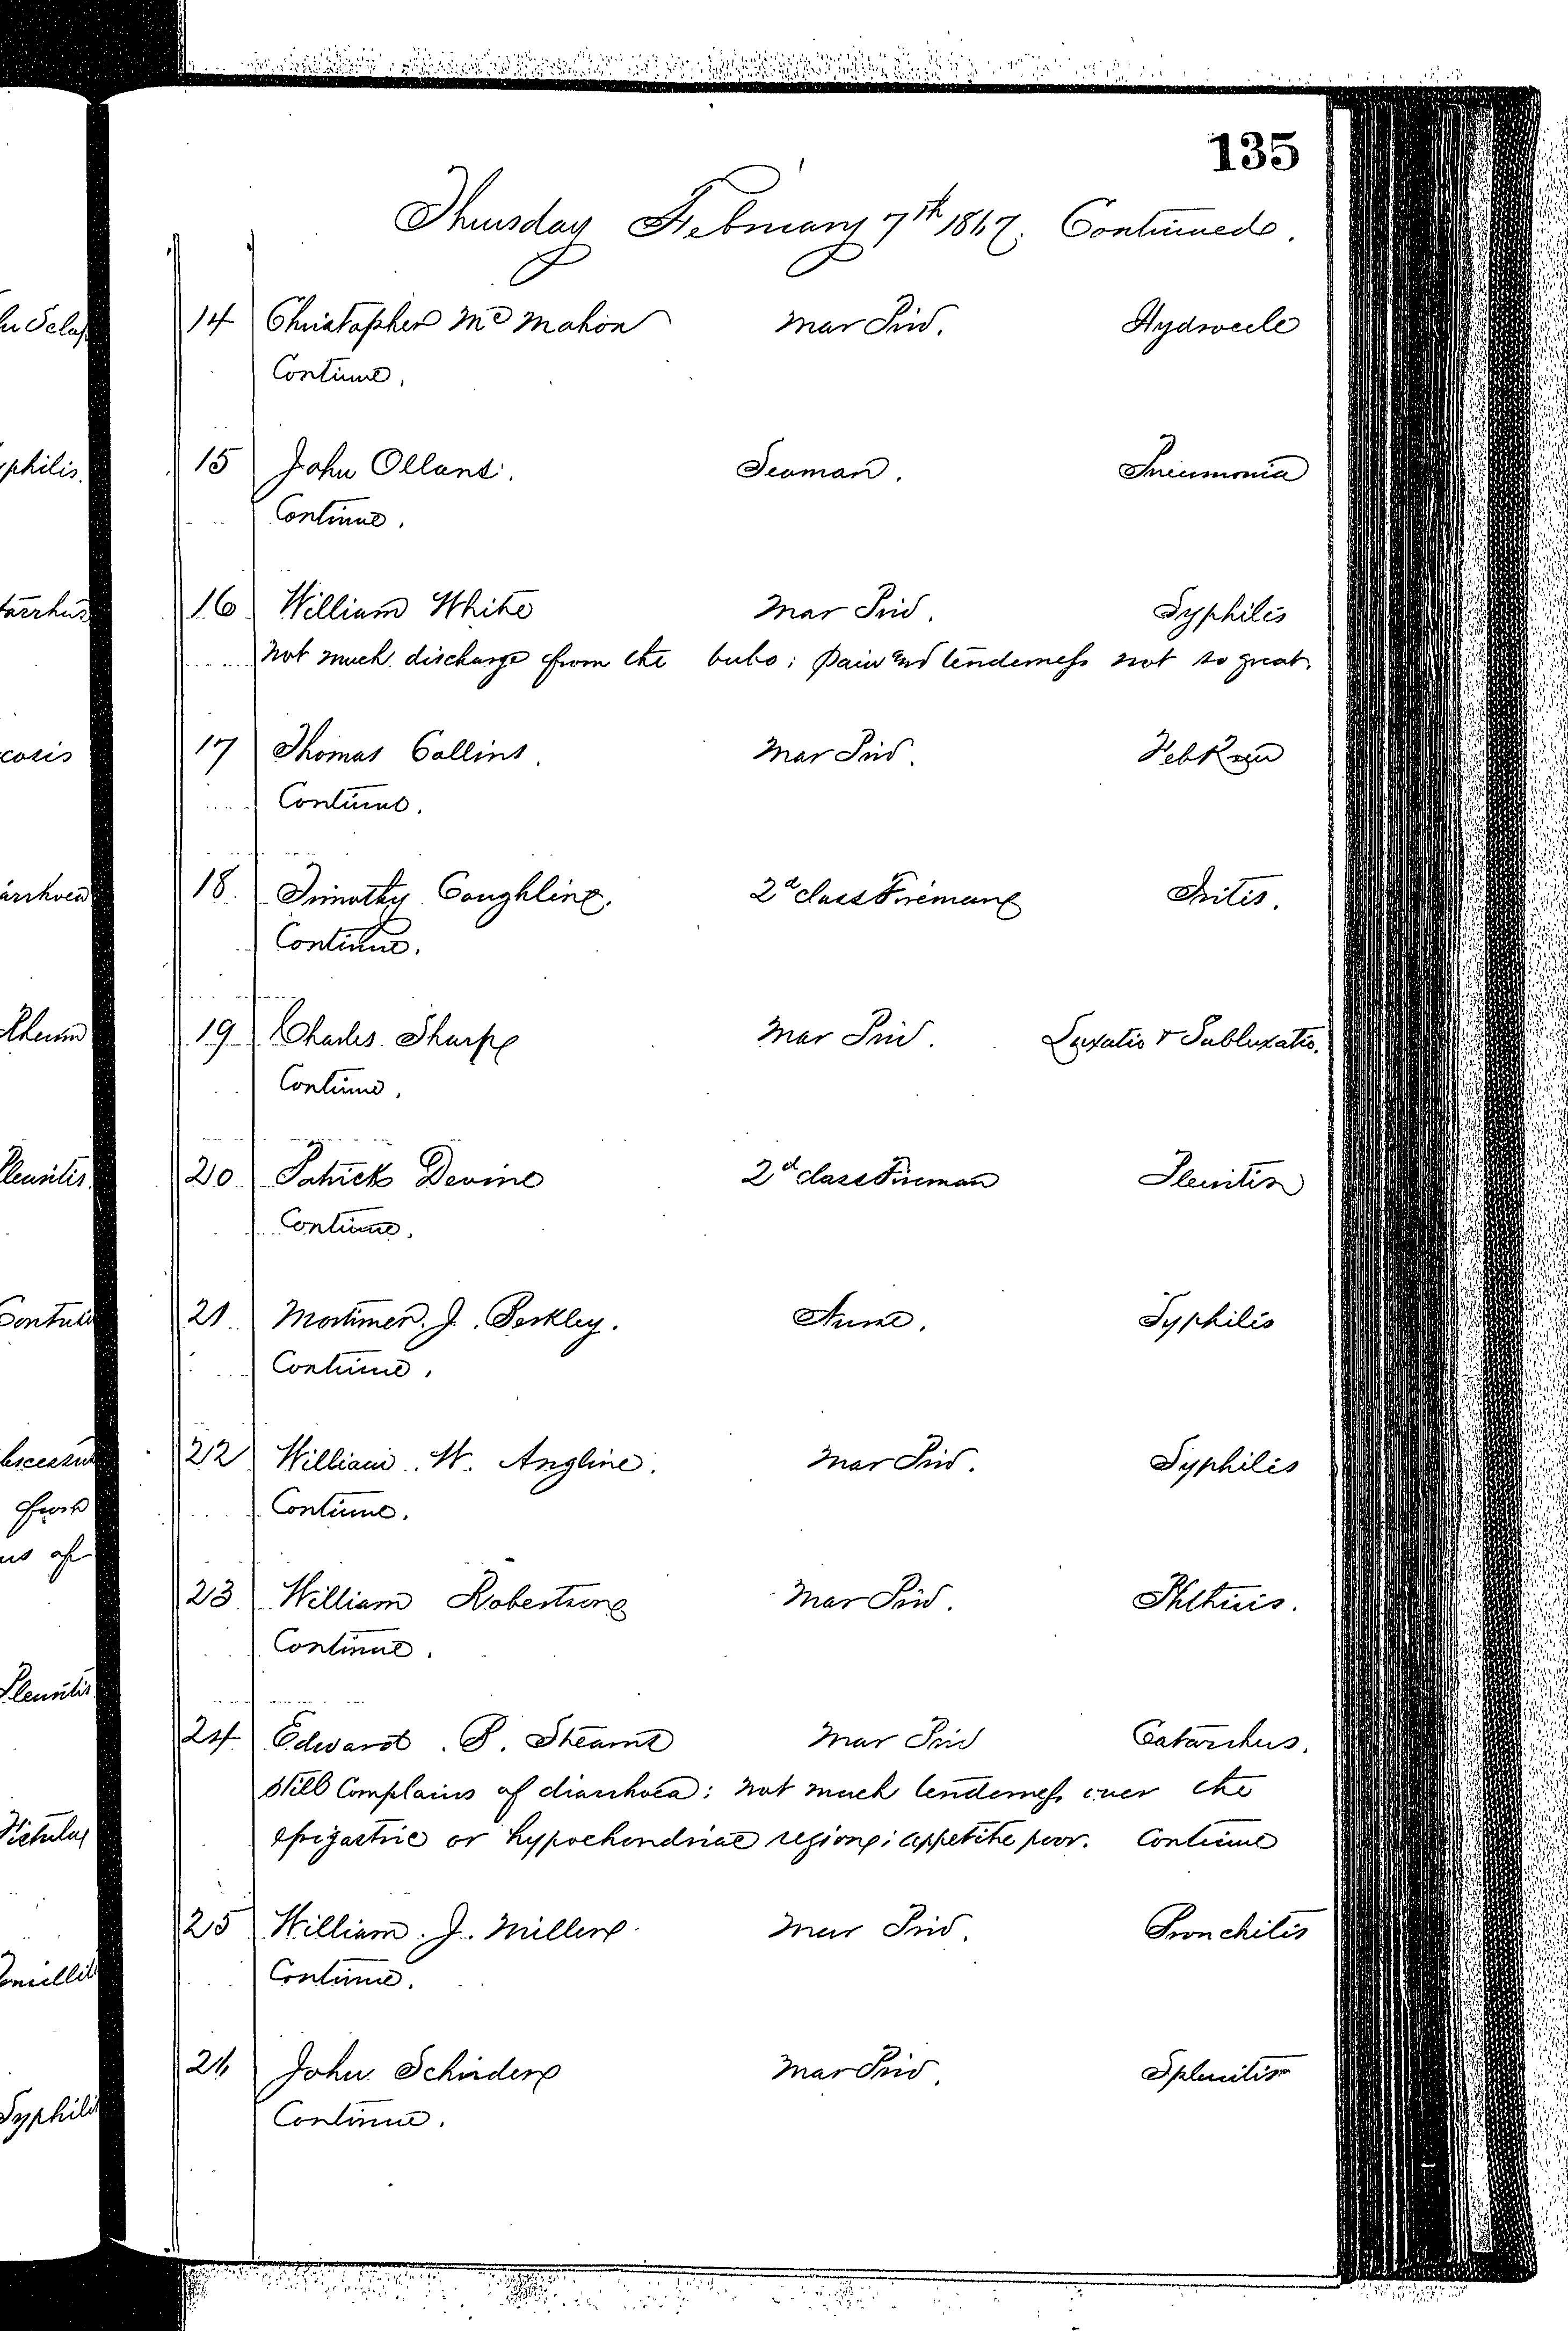 135
Thursday February 7th 1867. Continued.
14 Christopher Mc Mahon Mar Priv. Hydrocele
Continue.
15 John Ollans. Seaman. Pneumonia
Continue.
16 William White Mar Priv. Syphilis
Not much discharge from the bubo; pain and tenderness not so great.
17 Thomas Collins. Mar Priv. Feb Rem
Continue.
18. Timothy Coughlin. 2d class Fireman Iritis.
Continue.
19 Charles Sharp Mar Priv. Luxatio & Subluxatio.
Continue.
20 Patrick Devine 2d class Fireman Pleuritis
Continue.
21 Mortimer J. Berkley. Nurse. Syphilis
Continue.
22 William W. Angline. Mar Priv. Syphilis
Continue.
23 William Robertson Mar Priv. Phthisis.
Continue.
24 Edward P. Stearns Mar Priv Catarrhus.
Still complains of diarrhoea; not much tenderness over the
epigastric or hypochondriac regions; appetite poor. Continue
25 William J. Miller Mar Priv. Bronchitis
Continue.
26 John Schinder Mar Priv. Splenitis
Continue.